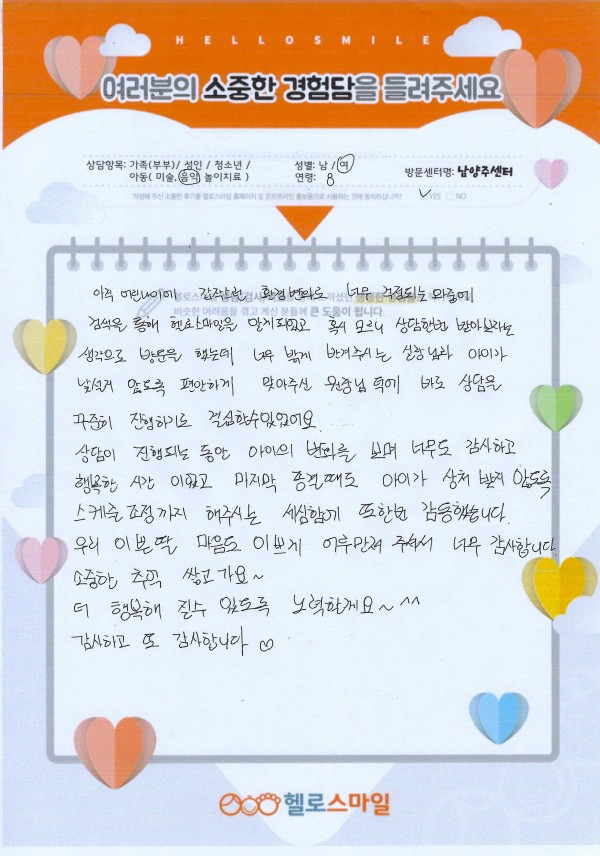 HELLOSMILE
여러분의 소중한 경험담을 들려주세요
상담항목: 가족(부부)/ 성인 / 청소년 / 성별: 남 / 여
아동( 미술, 음악, 놀이치료 ) 연령: 8 방문센터명: 남양주센터
작성해 주신 소중한 후기를 헬로스마일 홈페이지 및 온오프라인 홍보용으로 사용하는 것에 동의하십니까? ✓ YES □ NO
아주 어린나이에 갑작스런 환경변화로 너무 걱정되는 와중에
비슷한 어려움을 겪고 계신 분들께 큰 도움이 됩니다.
검색을 통해 헬로스마일을 알게되었고 혹시 모르니 상담한번 받아보자는
생각으로 방문을 했는데 너무 밝게 반겨주시는 실장님과 아이가
낯설지 않도록 편안하게 맞아주신 원장님 덕에 바로 상담을
꾸준히 진행하기로 결심할수있었어요
상담이 진행되는 동안 아이의 변화를 보며 너무도 감사하고
행복한 시간 이었고 마지막 종결때도 아이가 상처 받지 않도록
스케줄 조정까지 해주시는 세심함에 또한번 감동했습니다.
우리 이쁜딸 마음도 이쁘게 어루만져 주셔서 너무 감사합니다.
소중한 추억 쌓고가요~
더 행복해 질수 있도록 노력할게요~ ^^
감사하고 또 감사합니다 ♡
헬로스마일